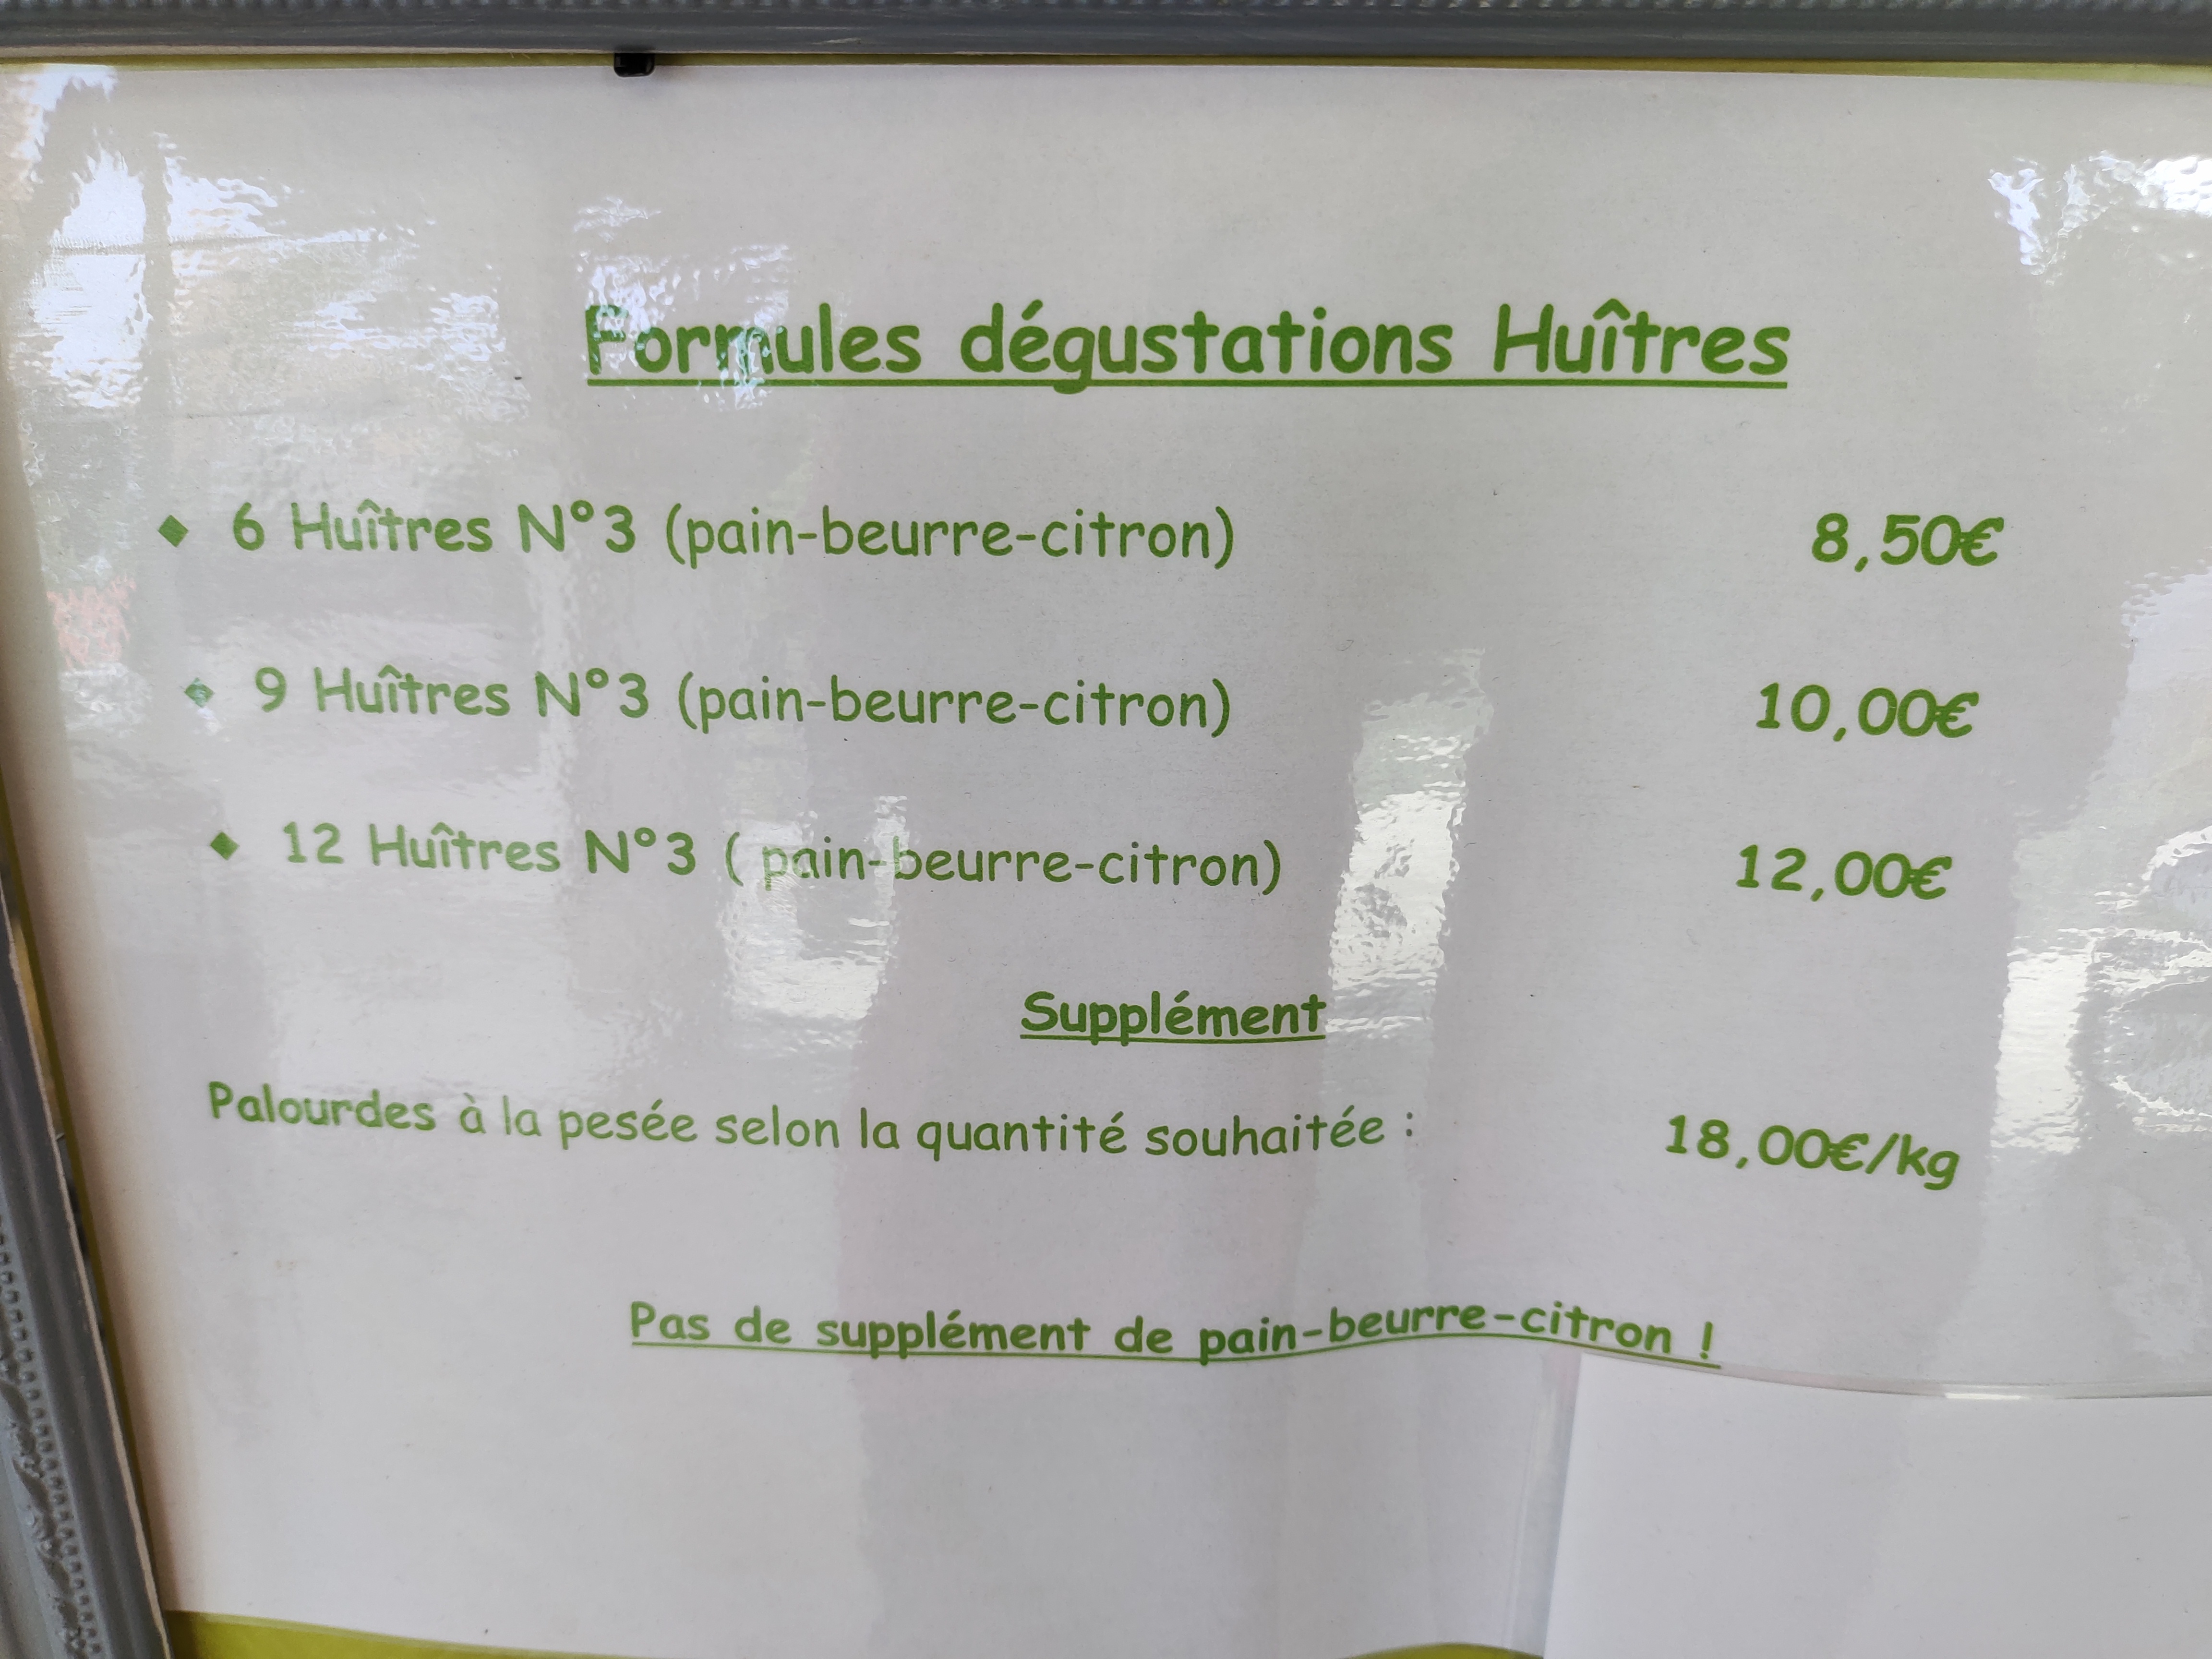 Formules dégustations Huîtres
◆ 6 Huîtres N°3 (pain-beurre-citron) 8,50€
◆ 9 Huîtres N°3 (pain-beurre-citron) 10,00€
◆ 12 Huîtres N°3 ( pain-beurre-citron) 12,00€
Supplément
Palourdes à la pesée selon la quantité souhaitée : 18,00€/kg
Pas de supplément de pain-beurre-citron !